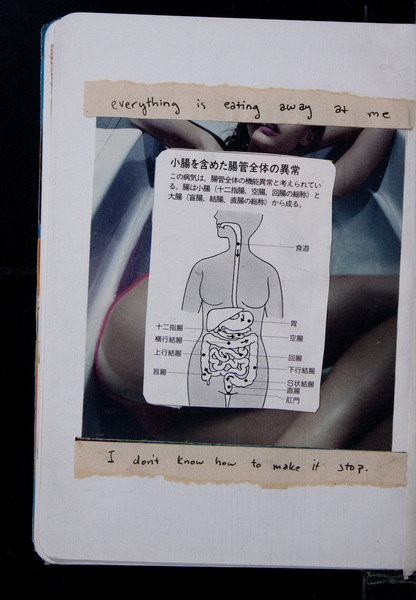 everything is eating away at me
小腸を含めた腸管全体の異常
この病気は、腸管全体の機能異常と考えられてい
る。腸は小腸（十二指腸、空腸、回腸の総称）と
大腸（盲腸、結腸、直腸の総称）から成る。
食道
胃
十二指腸
空腸
横行結腸
上行結腸
回腸
下行結腸
盲腸
S状結腸
直腸
肛門
I don't know how to make it stop.